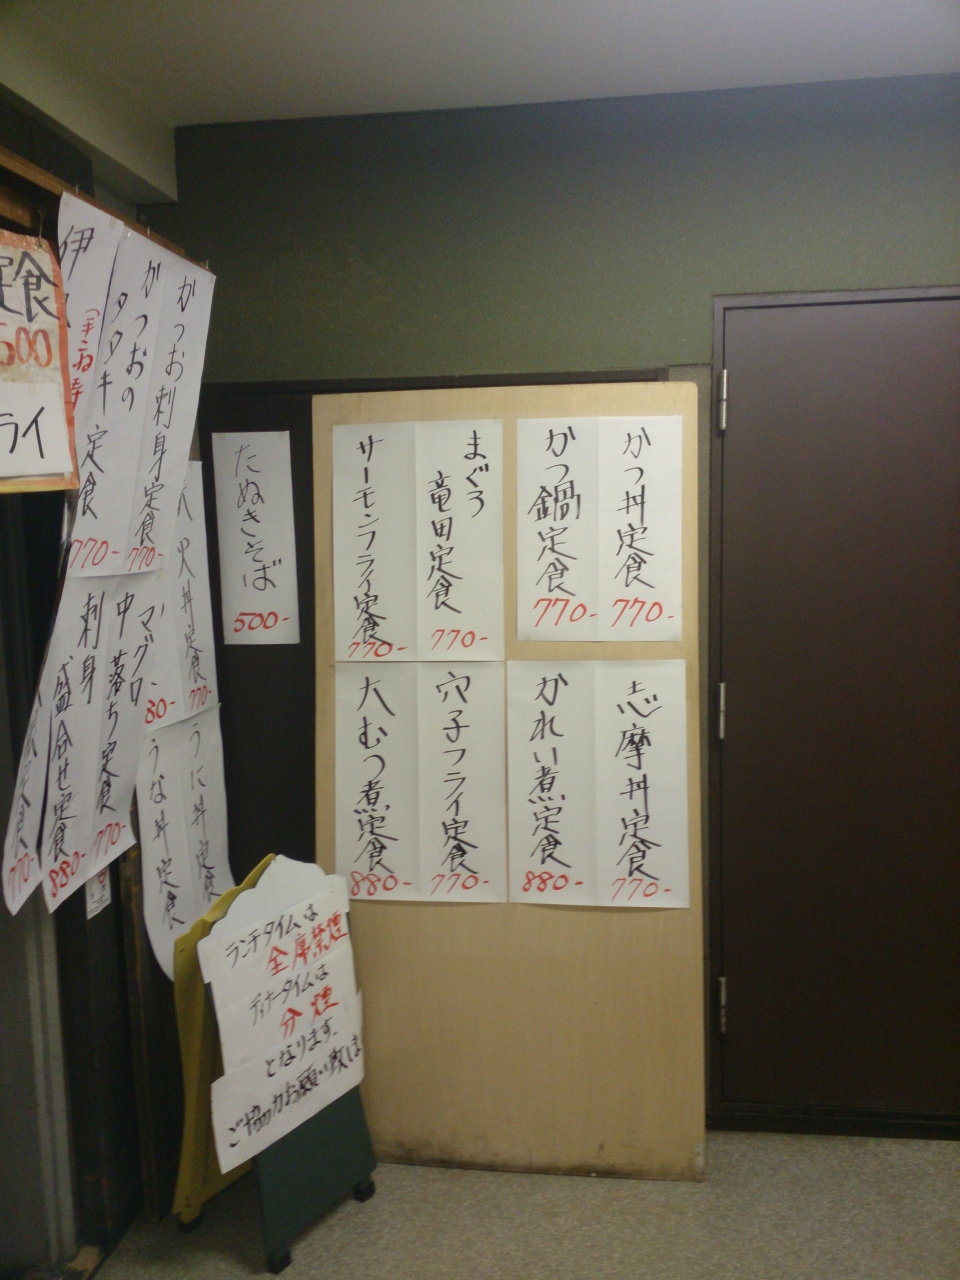 かつ丼定食
770-
かつ鍋定食
770-
まぐろ
竜田定食
770-
サーモンフライ定食
770-
志摩丼定食
770-
かれい煮定食
880-
穴子フライ定食
770-
大むつ煮定食
880-
たぬきそば
500-
かつお刺身定食
770-
かつおの
タタキ定食
770-
伊
定食
500
ライ
火丼定食
770-
マグロ
中落ち定食
770-
刺身
盛合せ定食
880-
770-
80-
うに丼定食
うな丼定食
ランチタイムは
全席禁煙
ディナータイムは
分煙
となります。
ご協力お願い致しま